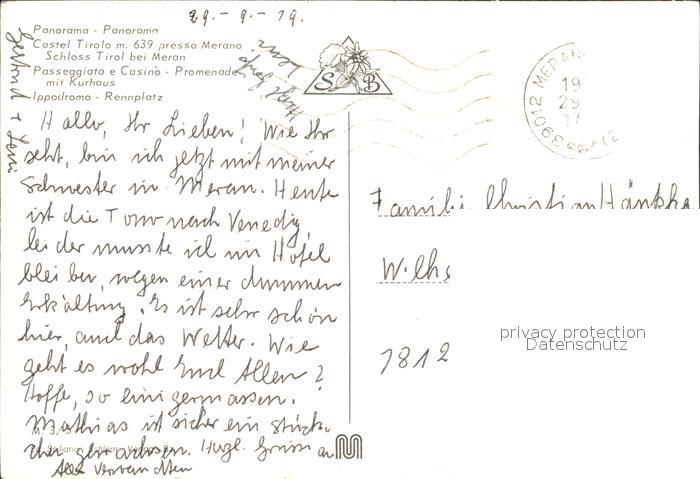 29.-9.-79.
Panorama - Panorama
Castel Tirolo m. 639 presso Merano
Schloss Tirol bei Meran
Passeggiata e Casinò - Promenade
mit Kurhaus
Ippodromo - Rennplatz
S B
39012 MERAN
19
29
Hallo, Ihr Lieben! Wie Ihr
seht, bin ich jetzt mit meiner
Schwester in Meran. Heute
ist die Tour nach Venedig,
leider musste ich im Hotel
bleiben, wegen einer dummen
Erkältung. Es ist sehr schön
hier, auch das Wetter. Wie
geht es wohl Euch Allen?
Hoffe, so einigermassen.
Mathias ist sicher ein Stück-
chen gewachsen. Herzl. Grüsse an
Alle Verwandten
Familie Christian
Wilhe
7812
privacy protection
Datenschutz